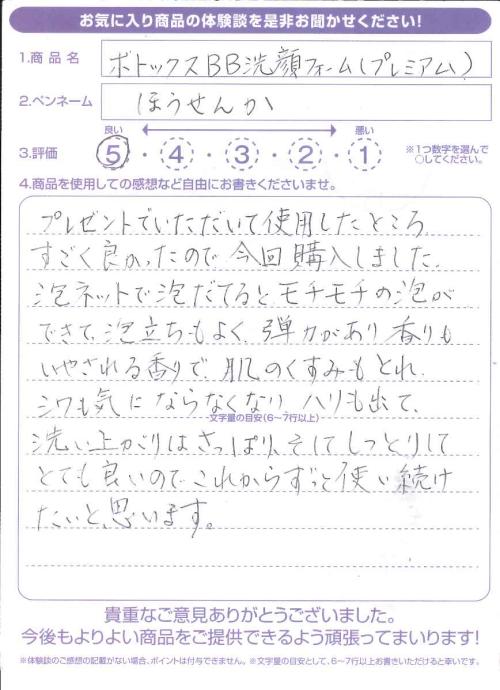 お気に入り商品の体験談を是非お聞かせください!
1.商品名 ボトックスBB洗顔フォーム(プレミアム)
2.ペンネーム ほうせんか
良い 悪い
3.評価 5・4・3・2・1 ※1つ数字を選んで○してください。
4.商品を使用しての感想など自由にお書きくださいませ。
プレゼントでいただいて使用したところ、
すごく良かったので、今回購入しました。
泡ネットで泡だてるとモチモチの泡が
できて、泡立ちもよく、弾力があり香りも
いやされる香りで、肌のくすみもとれ、
シワも気にならなくなり、ハリも出て、
文字量の目安(6~7行以上)
洗い上がりはさっぱり、そしてしっとりして
とても良いので、これからずっと使い続け
たいと、思います。
貴重なご意見ありがとうございました。
今後もよりよい商品をご提供できるよう頑張ってまいります!
※体験談のご感想の記載がない場合、ポイントは付与できません。※文字量の目安として、6~7行以上お書きいただけると幸いです。